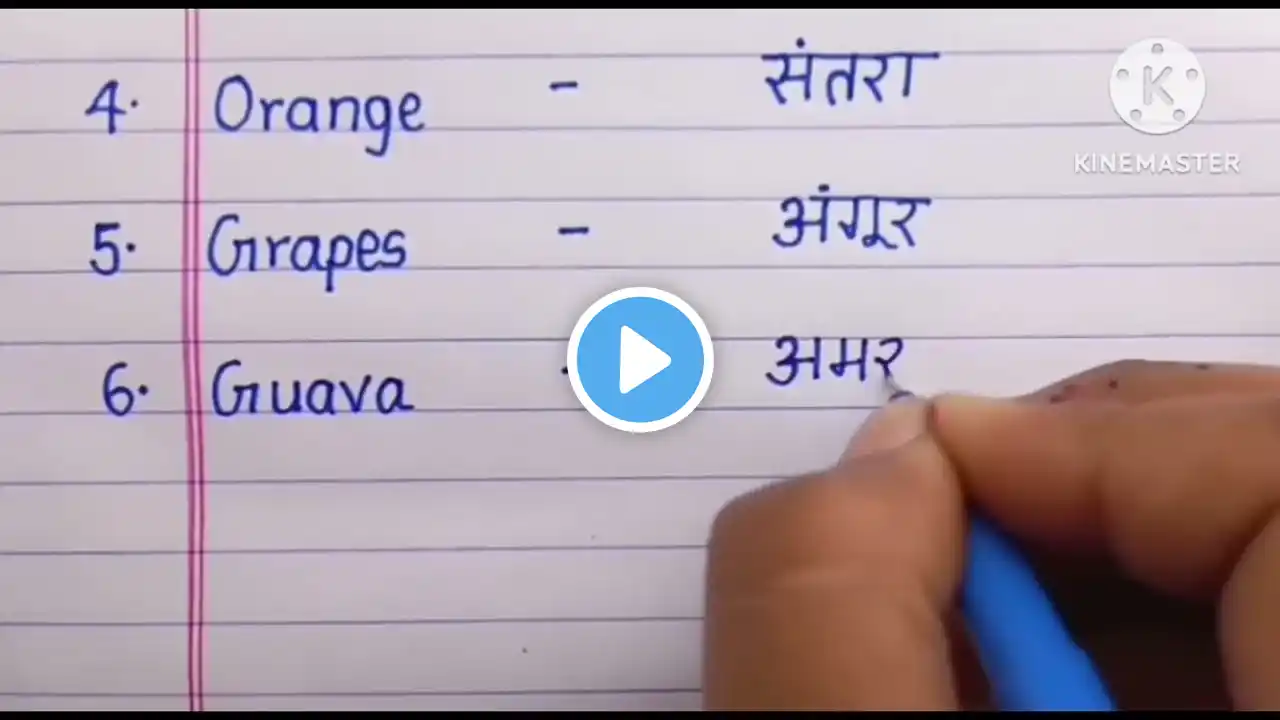 4. Orange - संतरा
KINEMASTER
5. Grapes - अंगूर
6. Guava - अमर